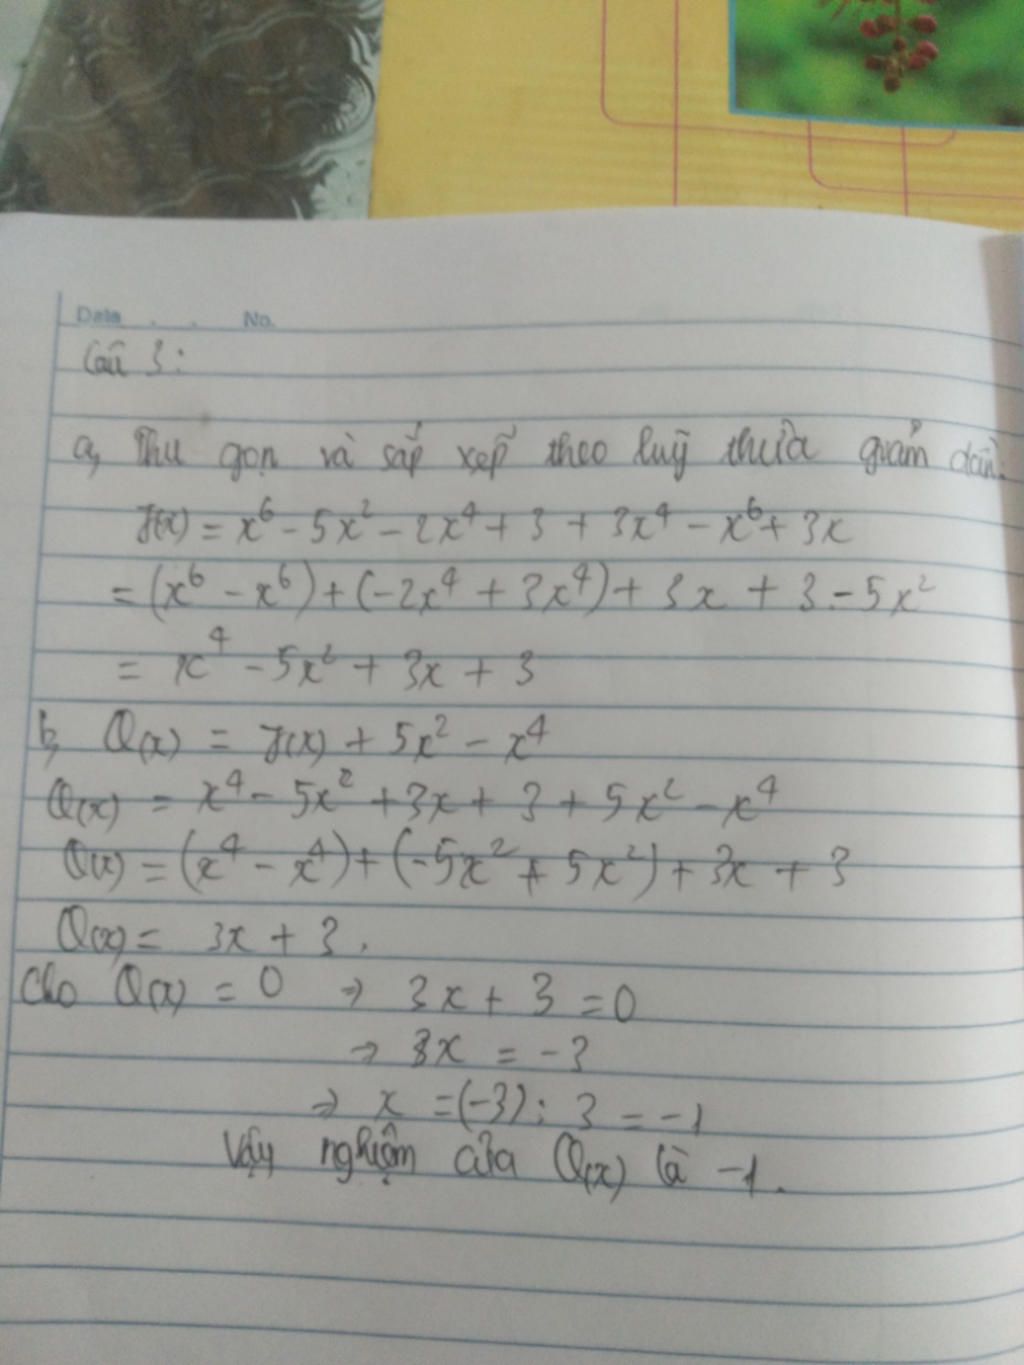 Date . . No.
Câu 3:
a, Thu gọn và sắp xếp theo luỹ thừa giảm dần:
f(x) = x⁶ - 5x² - 2x⁴ + 3 + 3x⁴ - x⁶ + 3x
= (x⁶ - x⁶) + (-2x⁴ + 3x⁴) + 3x + 3 - 5x²
= x⁴ - 5x² + 3x + 3
b, Q(x) = f(x) + 5x² - x⁴
Q(x) = x⁴ - 5x² + 3x + 3 + 5x² - x⁴
Q(x) = (x⁴ - x⁴) + (-5x² + 5x²) + 3x + 3
Q(x) = 3x + 3.
Cho Q(x) = 0 → 3x + 3 = 0
→ 3x = -3
→ x = (-3) : 3 = -1
Vậy nghiệm của Q(x) là -1.